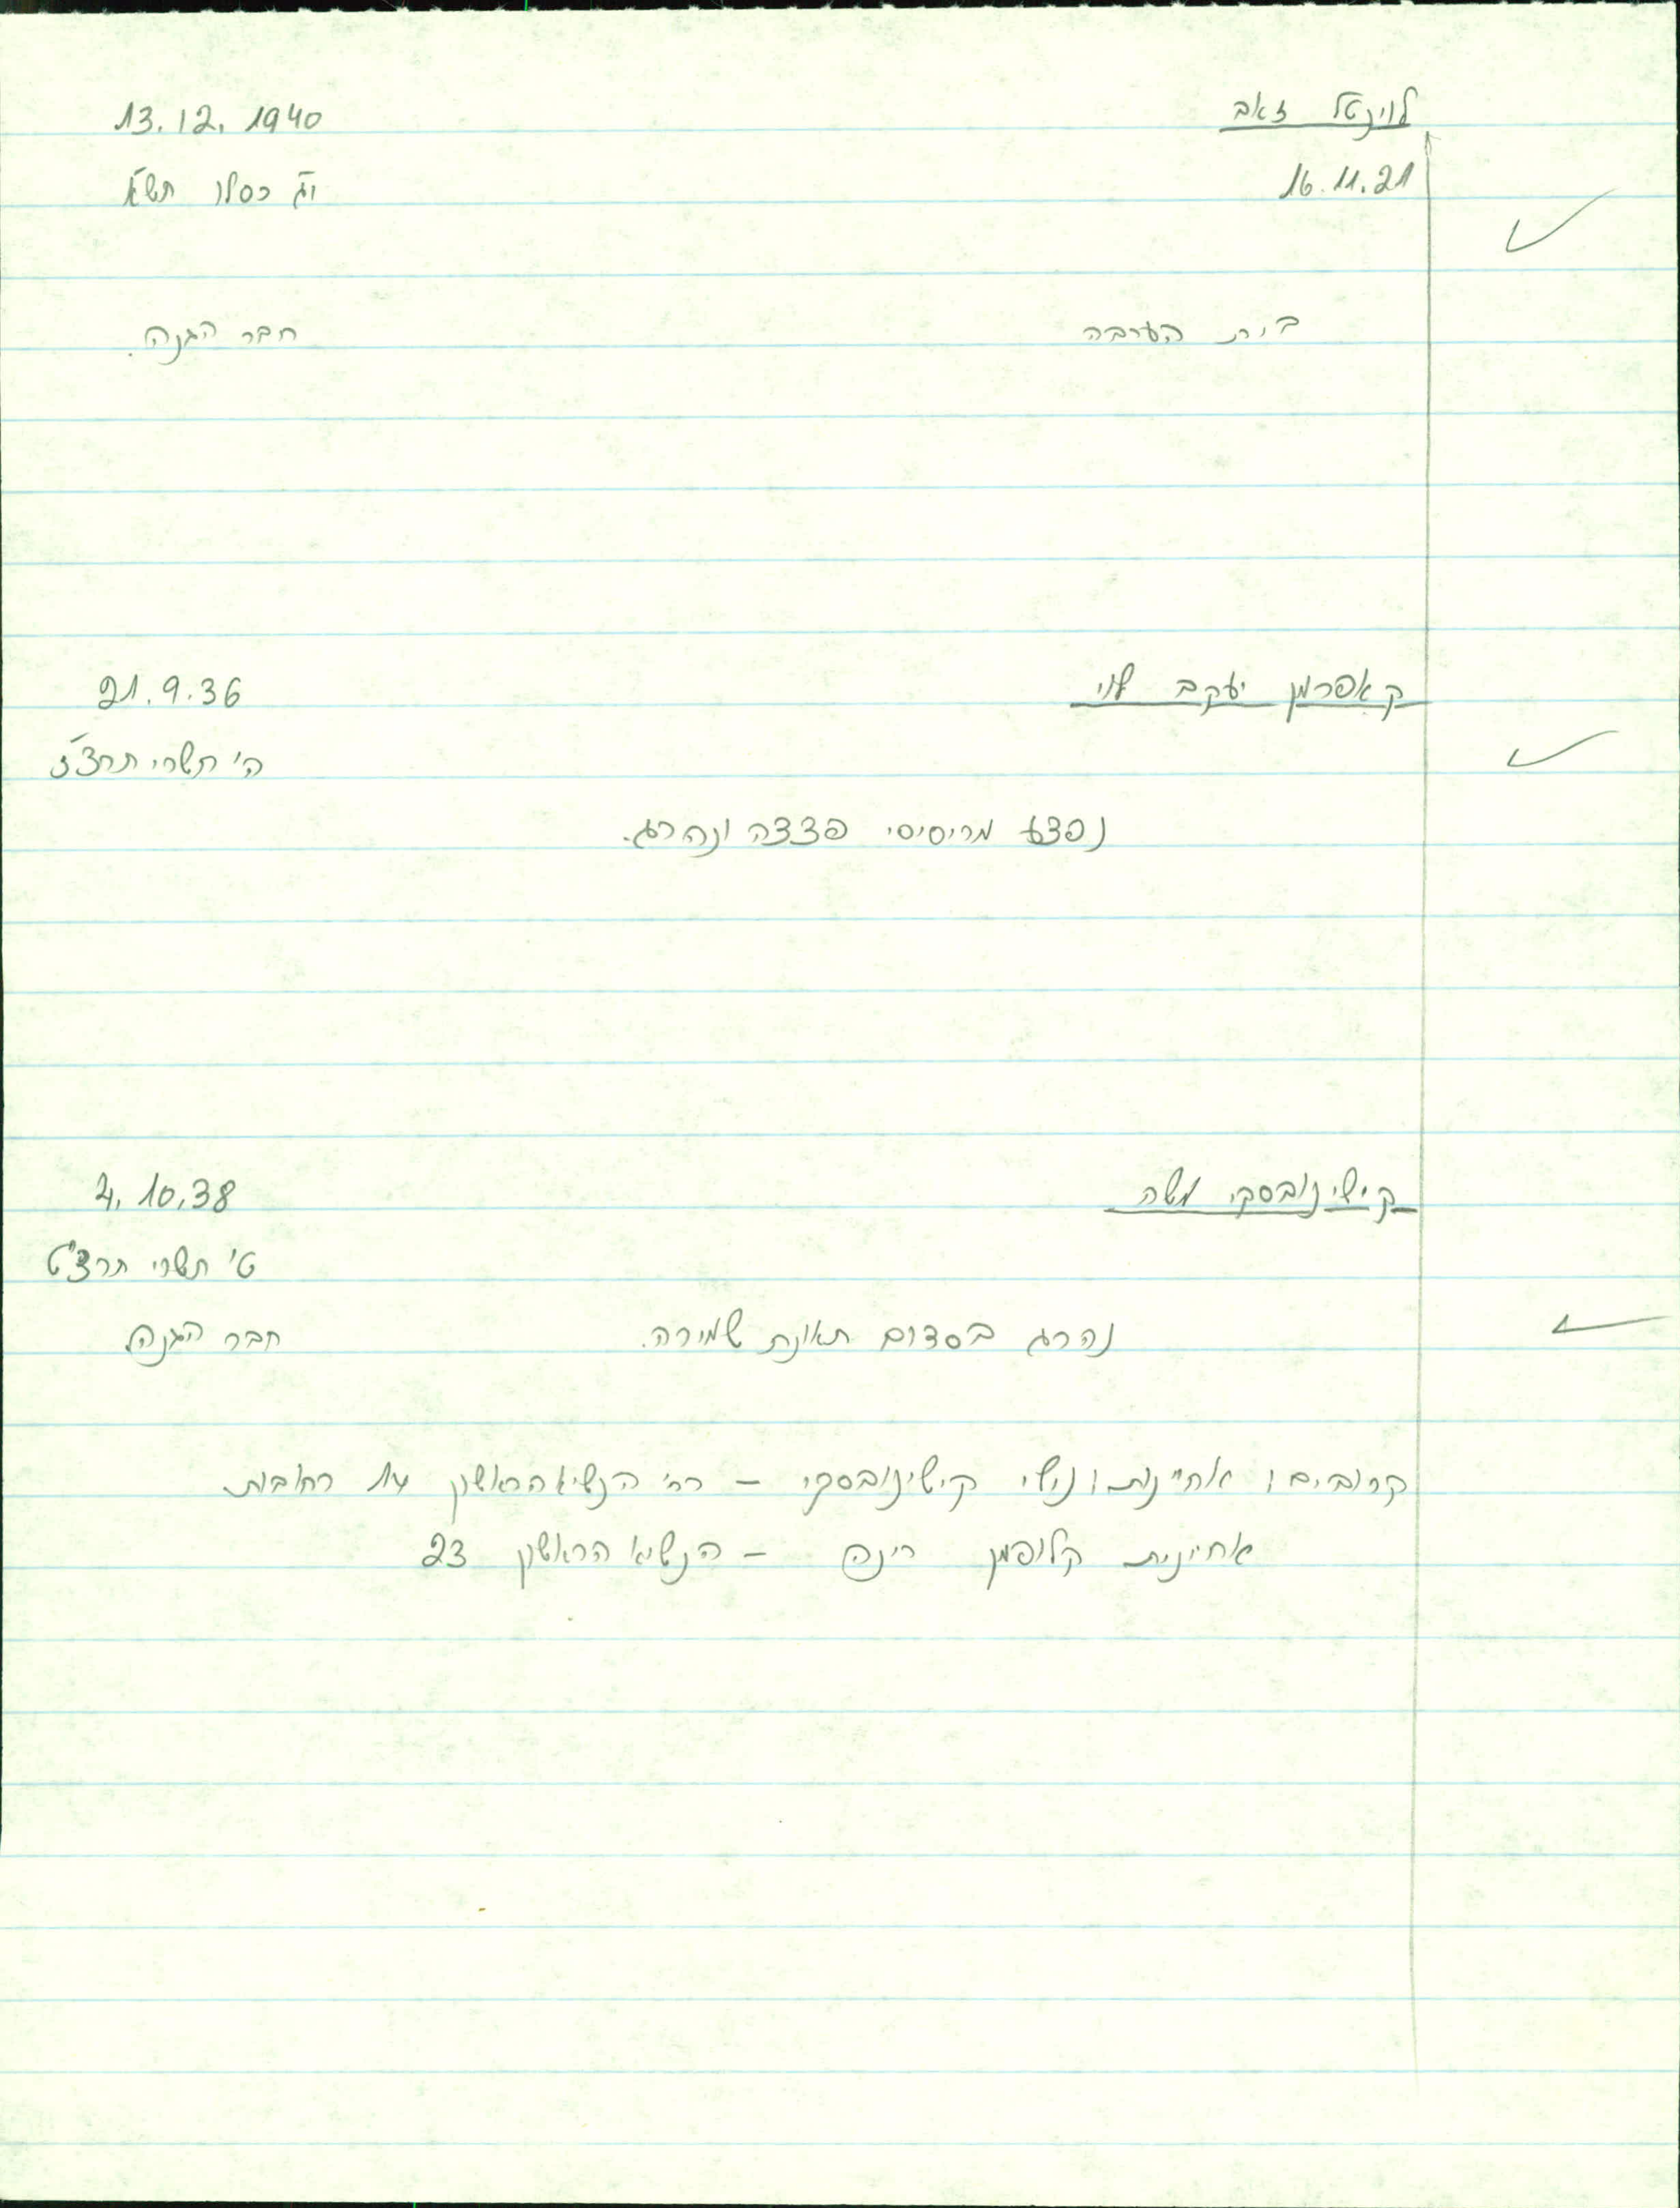 לוינטל זאב 13.12.1940
16.11.21 י"ג כסלו תש"א
בית הערבה חבר הגנה.
קאפרמן יעקב לוי 21.9.36
ה' תשרי תרצ"ז
נפצע מריסיסי פצצה ונהרג.
קישינובסקי משה 4.10.38
ט' תשרי תרצ"ט
נהרג בסדום תאונת שמירה. חבר הגנה
קרובים: אחיינות: קישינובסקי – רח' הנשיא הראשון רחובות
אחיינית קלופמן רינה – הנשיא הראשון 23